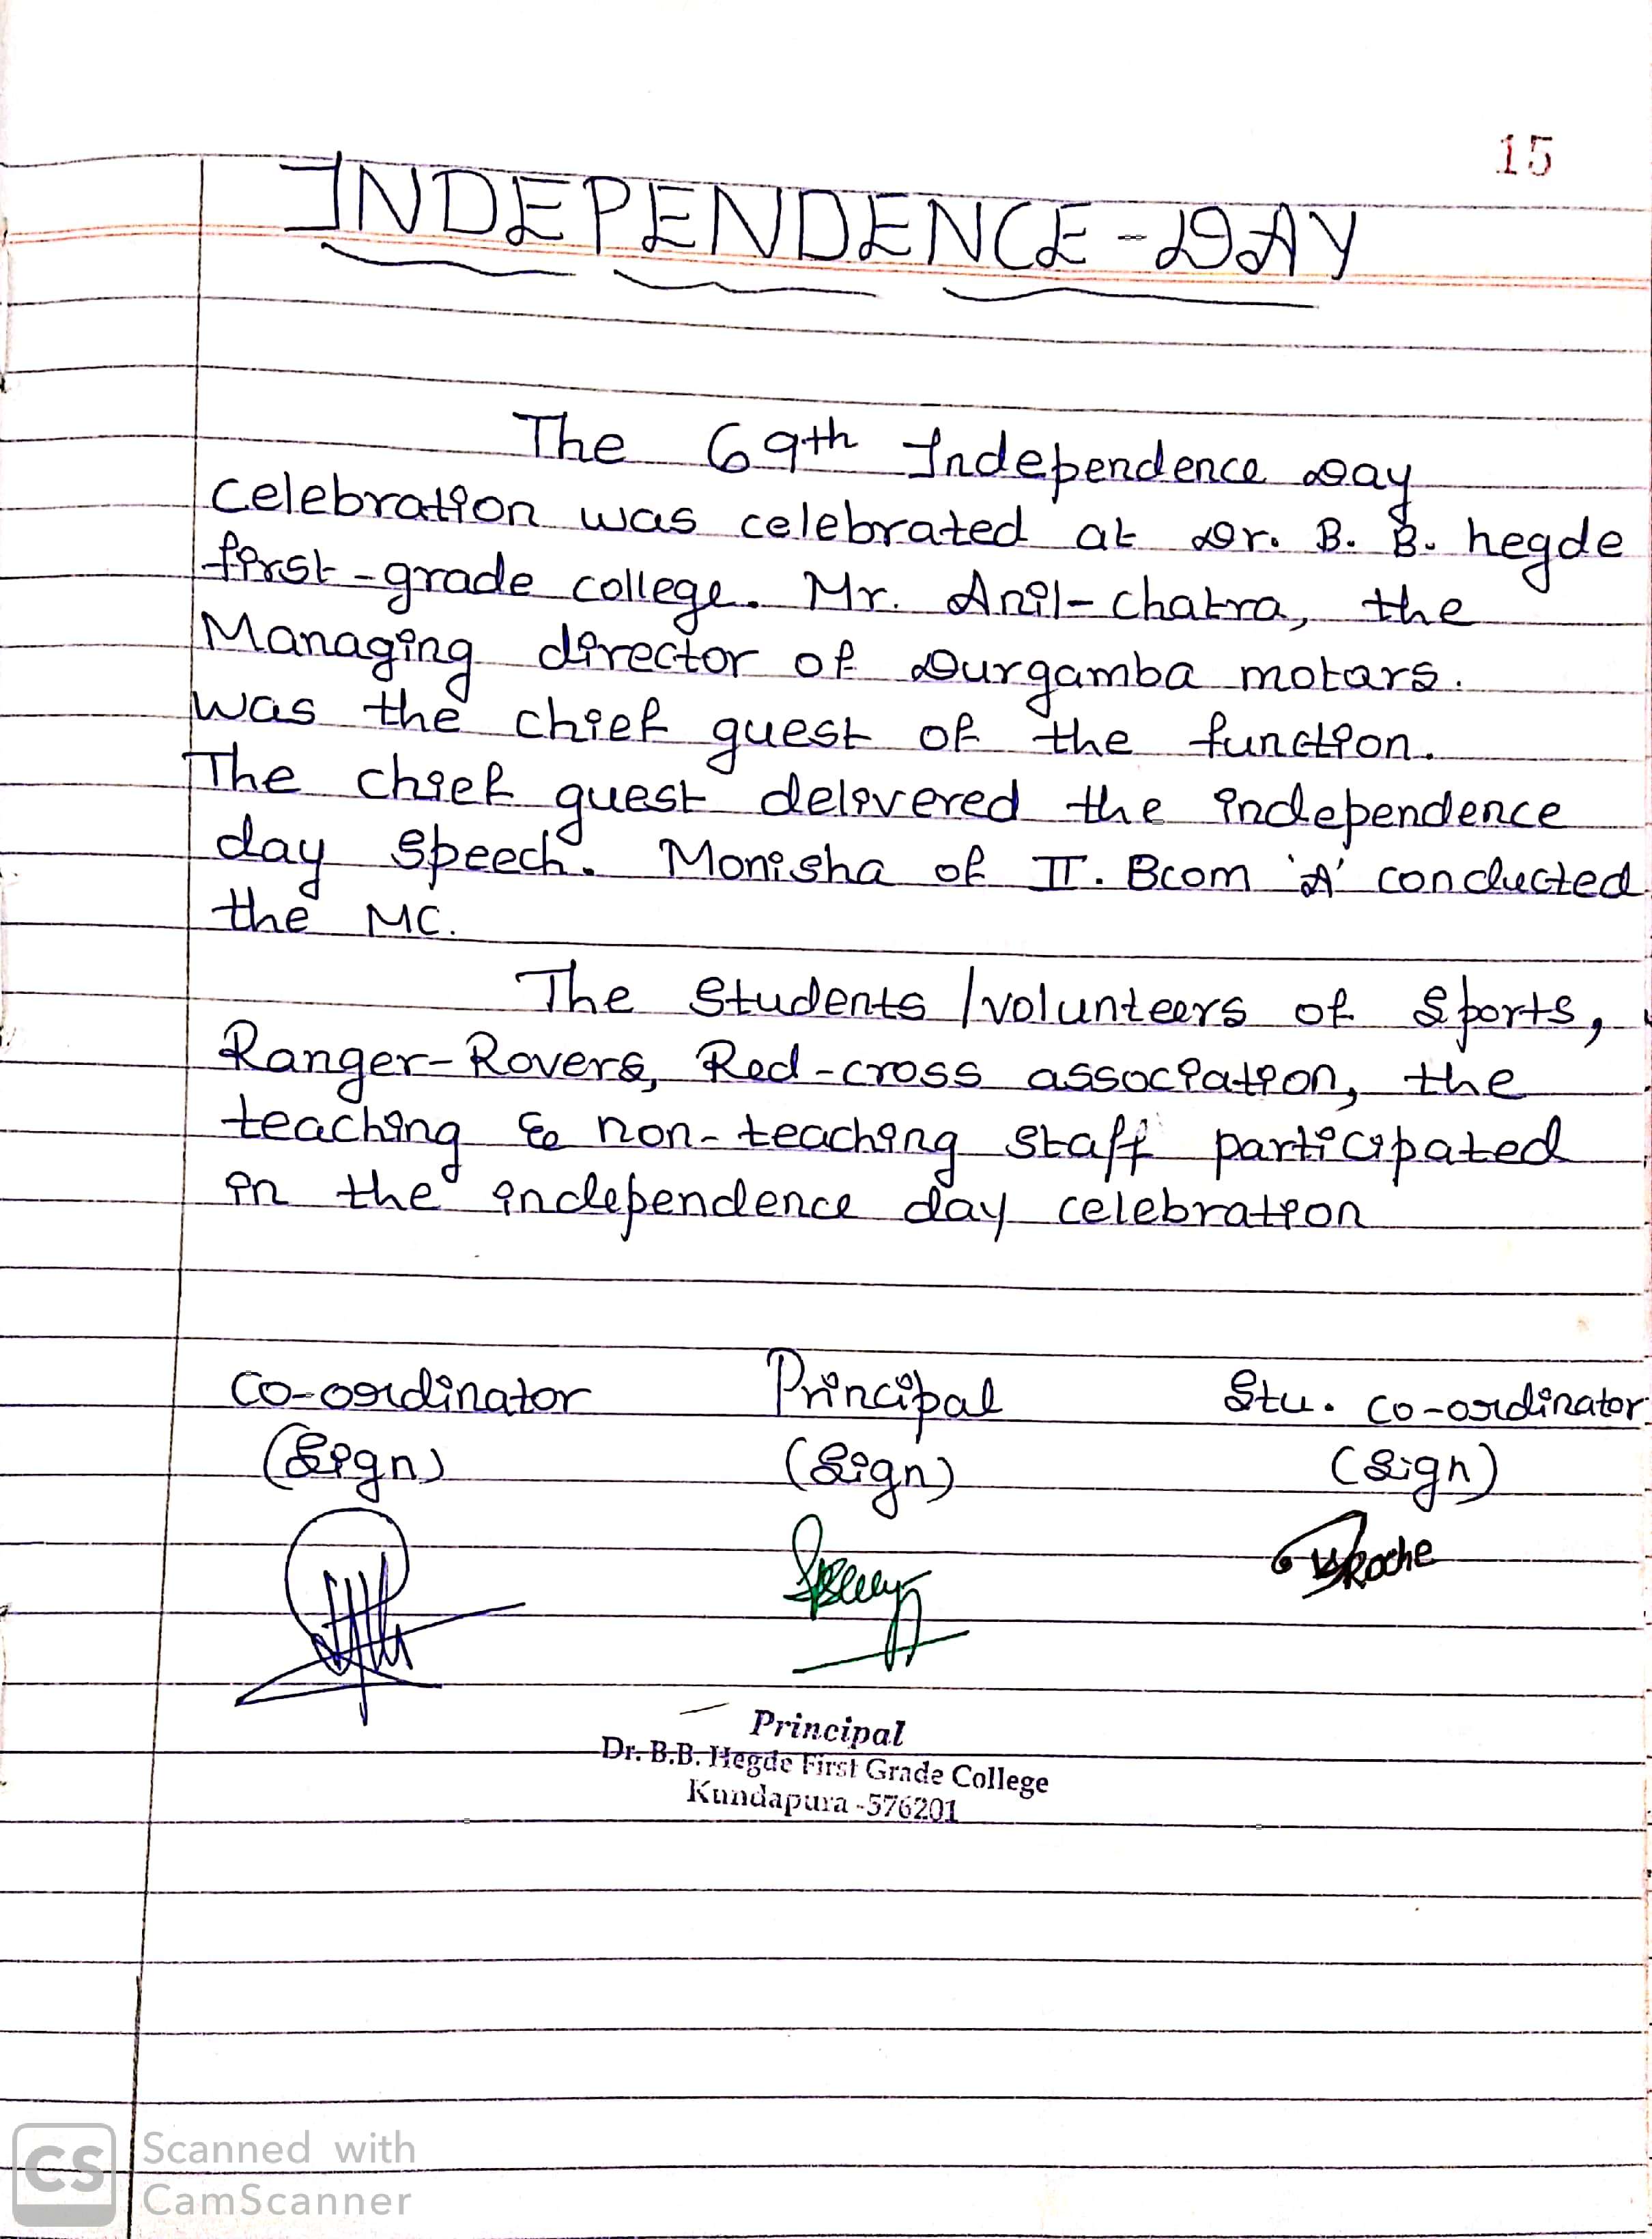 15
INDEPENDENCE-DAY
The 69th Independence Day
celebration was celebrated at Dr. B. B. hegde
first-grade college. Mr. Anil-chatra, the
Managing director of Durgamba motars.
was the chief guest of the function.
The chief guest delivered the independence
day speech. Monisha of II. Bcom 'A' conducted
the MC.
The Students / volunteers of Sports,
Ranger-Rovers, Red-cross association, the
teaching & non-teaching staff participated
in the independence day celebration
Co-ordinator Principal Stu. co-ordinator
(Sign) (Sign) (Sign)
Roche
Principal
Dr. B.B. Hegde First Grade College
Kundapura -576201
CS Scanned with
CamScanner